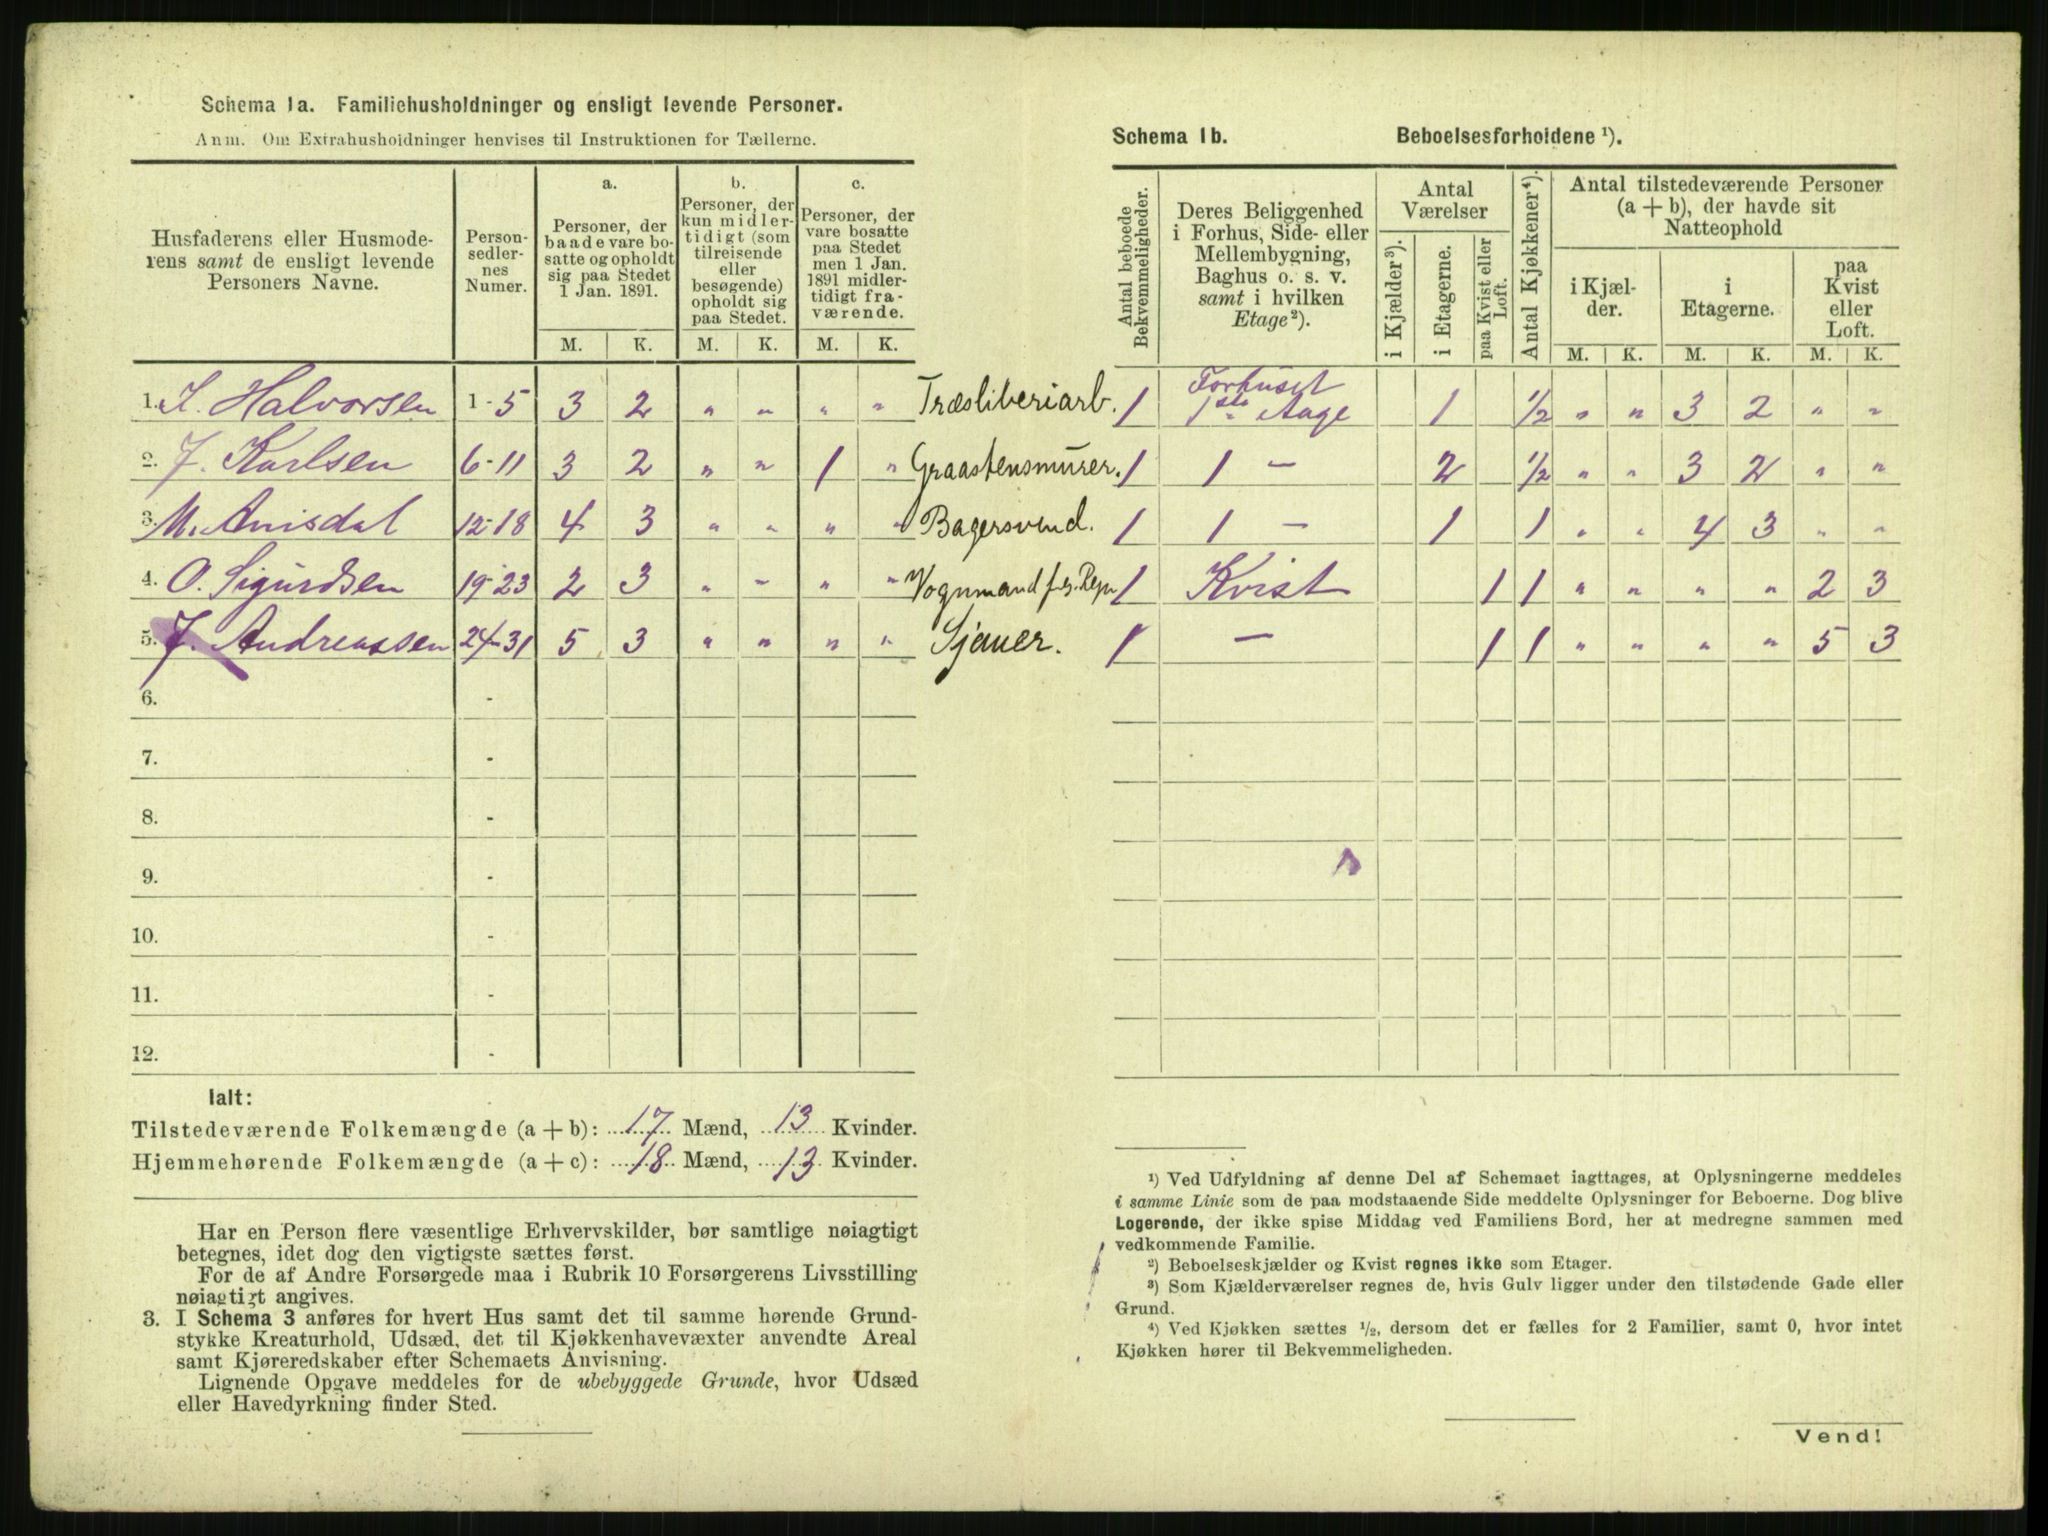 Schema 1a. Familiehusholdninger og ensligt levende Personer.
Anm. Om Extrahusholdninger henvises til Instruktionen for Tællerne.
Husfaderens eller Husmoderens samt de ensligt levende Personers Navne.
Personsedlernes Numer.
a. Personer, der baade vare bosatte og opholdt sig paa Stedet 1 Jan. 1891.
b. Personer, der kun midlertidigt (som tilreisende eller besøgende) opholdt sig paa Stedet.
c. Personer, der vare bosatte paa Stedet men 1 Jan. 1891 midlertidigt fraværende.
M. K. M. K. M. K.
1. Halvorsen 1-5 3 2 " " " " Træsliberiarb.
2. J. Karlsen 6-11 3 2 " " 1 " Graastensmurer.
3. M. Anisdal 12-18 4 3 " " " " Bagersvend.
4. O. Sigurdsen 19-23 2 3 " " " " Vognmand
5. J. Andreassen 24-31 5 3 " " " " Sjauer.
6. -
7. -
8. -
9. -
10. -
11. -
12. -
Ialt:
Tilstedeværende Folkemængde (a + b): 17 Mænd, 13 Kvinder.
Hjemmehørende Folkemængde (a + c): 18 Mænd, 13 Kvinder.
Har en Person flere væsentlige Erhvervskilder, bør samtlige nøiagtigt
betegnes, idet dog den vigtigste sættes først.
For de af Andre Forsørgede maa i Rubrik 10 Forsørgerens Livsstilling
nøiagtigt angives.
3. I Schema 3 anføres for hvert Hus samt det til samme hørende Grund-
stykke Kreaturhold, Udsæd, det til Kjøkkenhavevæxter anvendte Areal
samt Kjøreredskaber efter Schemaets Anvisning.
Lignende Opgave meddeles for de ubebyggede Grunde, hvor Udsæd
eller Havedyrkning finder Sted.
Schema 1b. Beboelsesforholdene ¹).
Antal beboede Bekvemmeligheder.
Deres Beliggenhed i Forhus, Side- eller Mellembygning, Baghus o. s. v. samt i hvilken Etage ²).
Antal Værelser
i Kjælder ³).
i Etagerne.
paa Kvist eller Loft.
Antal Kjøkkener ⁴).
Antal tilstedeværende Personer (a + b), der havde sit Natteophold
i Kjælder.
i Etagerne.
paa Kvist eller Loft.
M. K. M. K. M. K.
1 Forhuset 1ste Aage 1 1/2 " " 3 2 " "
1 1 — 2 1/2 " " 3 2 " "
1 1 — 1 1 " " 4 3 " "
1 Kvist 1 1 " " " " 2 3
1 — 1 1 " " " " 5 3
¹) Ved Udfyldning af denne Del af Schemaet iagttages, at Oplysningerne meddeles
i samme Linie som de paa modstaaende Side meddelte Oplysninger for Beboerne. Dog blive
Logerende, der ikke spise Middag ved Familiens Bord, her at medregne sammen med
vedkommende Familie.
²) Beboelseskjælder og Kvist regnes ikke som Etager.
³) Som Kjælderværelser regnes de, hvis Gulv ligger under den tilstødende Gade eller
Grund.
⁴) Ved Kjøkken sættes ½, dersom det er fælles for 2 Familier, samt 0, hvor intet
Kjøkken hører til Bekvemmeligheden.
Vend!